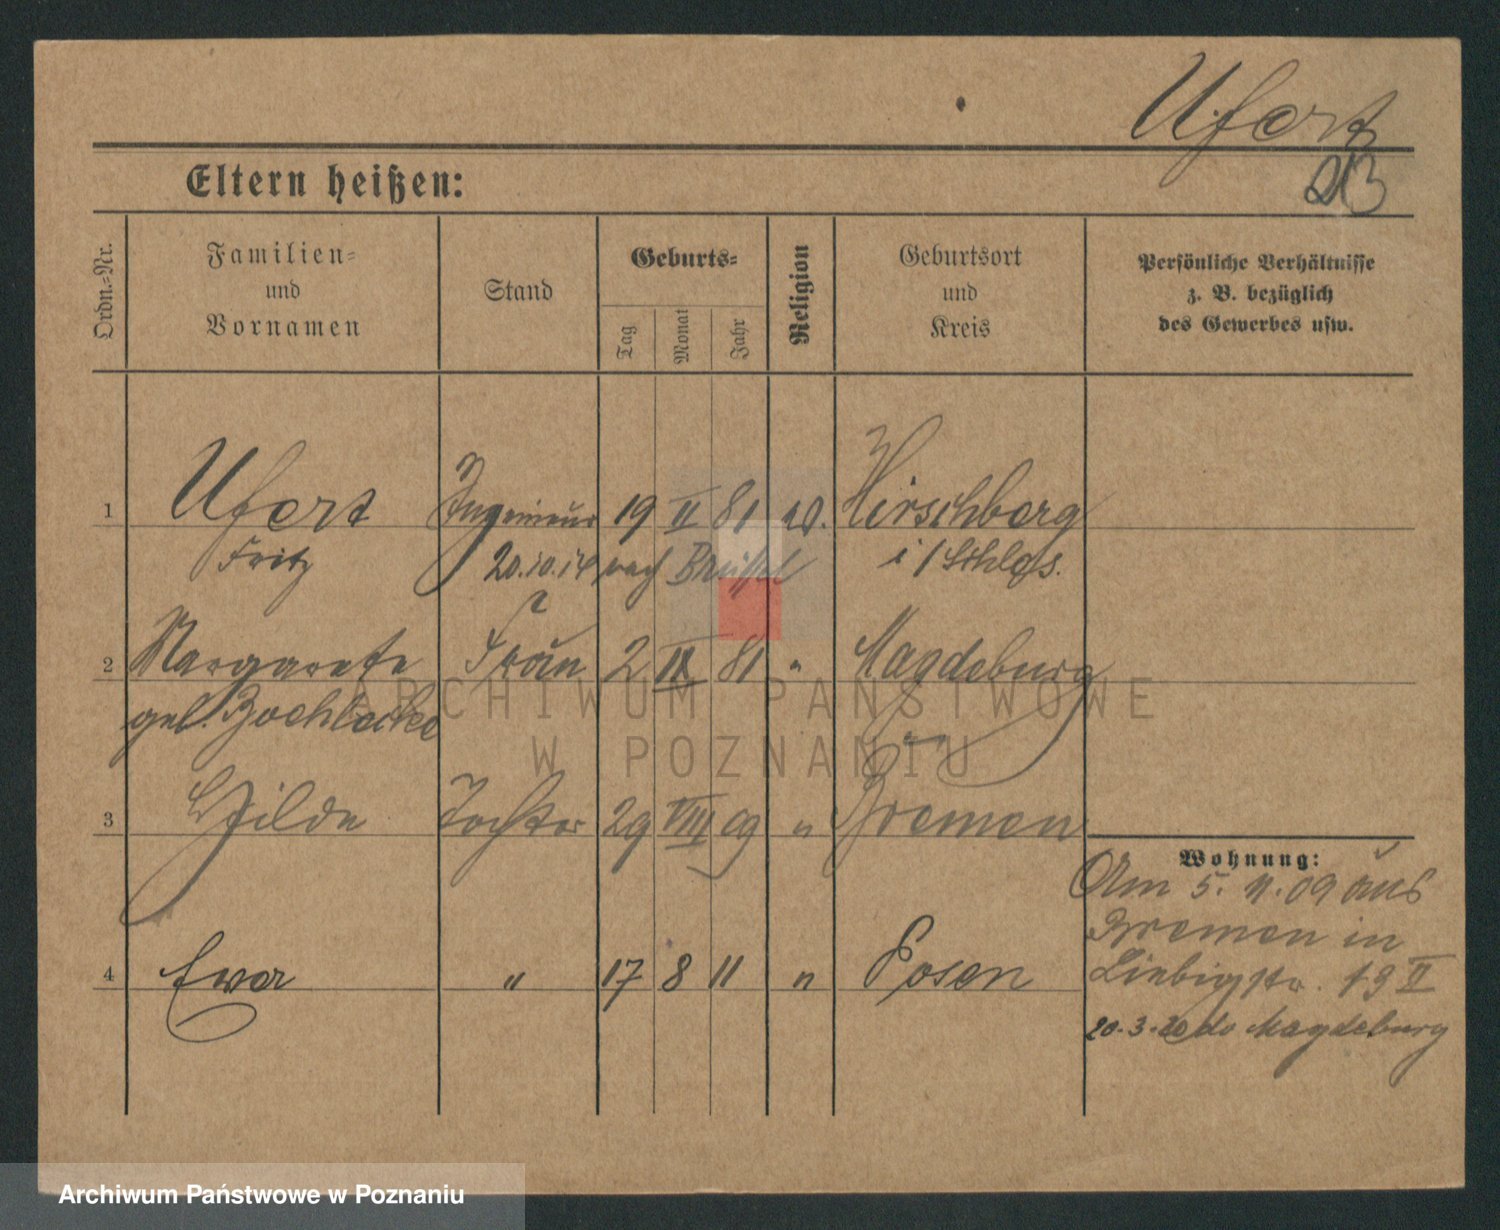 Ufert
Eltern heißen:
Ordn.-Nr.
Familien-
und
Vornamen
Stand
Geburts-
Tag
Monat
Jahr
Religion
Geburtsort
und
Kreis
Persönliche Verhältnisse
z. B. bezüglich
des Gewerbes usw.
1 Ufert Ingenieur 19 II 81 Hirschberg
Fritz 20.10.14 nach Brüssel i/Schles.
2 Margarete Frau 2 IX 81 " Magdeburg
geb.
3 Hilde Tochter 29 VIII 09 " Bremen
4 Ewa " 17 8 11 " Posen
Wohnung:
Am 5. 11. 09 aus
Bremen in
Liebigstr. 19 II
20.3.20 Magdeburg
ARCHIWUM PAŃSTWOWE
W POZNANIU
Archiwum Państwowe w Poznaniu